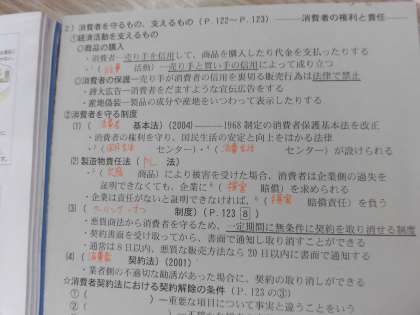 2）消費者を守るもの、支えるもの（P.122～P.123）――消費者の権利と責任――
①経済活動を支えるもの
◎商品の購入
・消費者―売り手を信用して、商品を購入したり代金を支払ったりする
・¹( 活動)―売り手と買い手の信用によって成り立つ
◎消費者の保護―売り手が消費者の信用を裏切る販売行為は法律で禁止
・誇大広告―消費者をだますような宣伝広告をする
・産地偽装―製品の成分や産地をいつわって表示したりする
②消費者を守る制度
(1)（消費者 基本法）(2004)――1968制定の消費者保護基本法を改正
・消費者の権利を守り、国民生活の安定と向上をはかる法律
・²(国民生活 センター)・³(消費生活 センター）が設けられる
(2) 製造物責任法（PL 法）
・⁴(欠陥 商品）により被害を受けた場合、消費者は企業側の過失を
証明できなくても、企業に⁵(損害 賠償）を求められる
・企業は責任がないと証明できなければ、⁵(損害 賠償責任）を負う
(3)（クーリング・オフ 制度）（P.123 8）
・悪質商法から消費者を守るため、一定期間に無条件に契約を取り消せる制度
・契約書面を受け取ってから、書面で通知し取り消すことができる
・通常は8日以内、悪質な販売方法なら20日以内に書面で通知する
(4)（消費者 契約法）(2001)
・業者側の不適切な勧誘があった場合に、契約の取り消しができる
☆消費者契約法における契約解除の条件（P.123の③）
①（ ）～重要な項目について事実と違うことをいう
②（